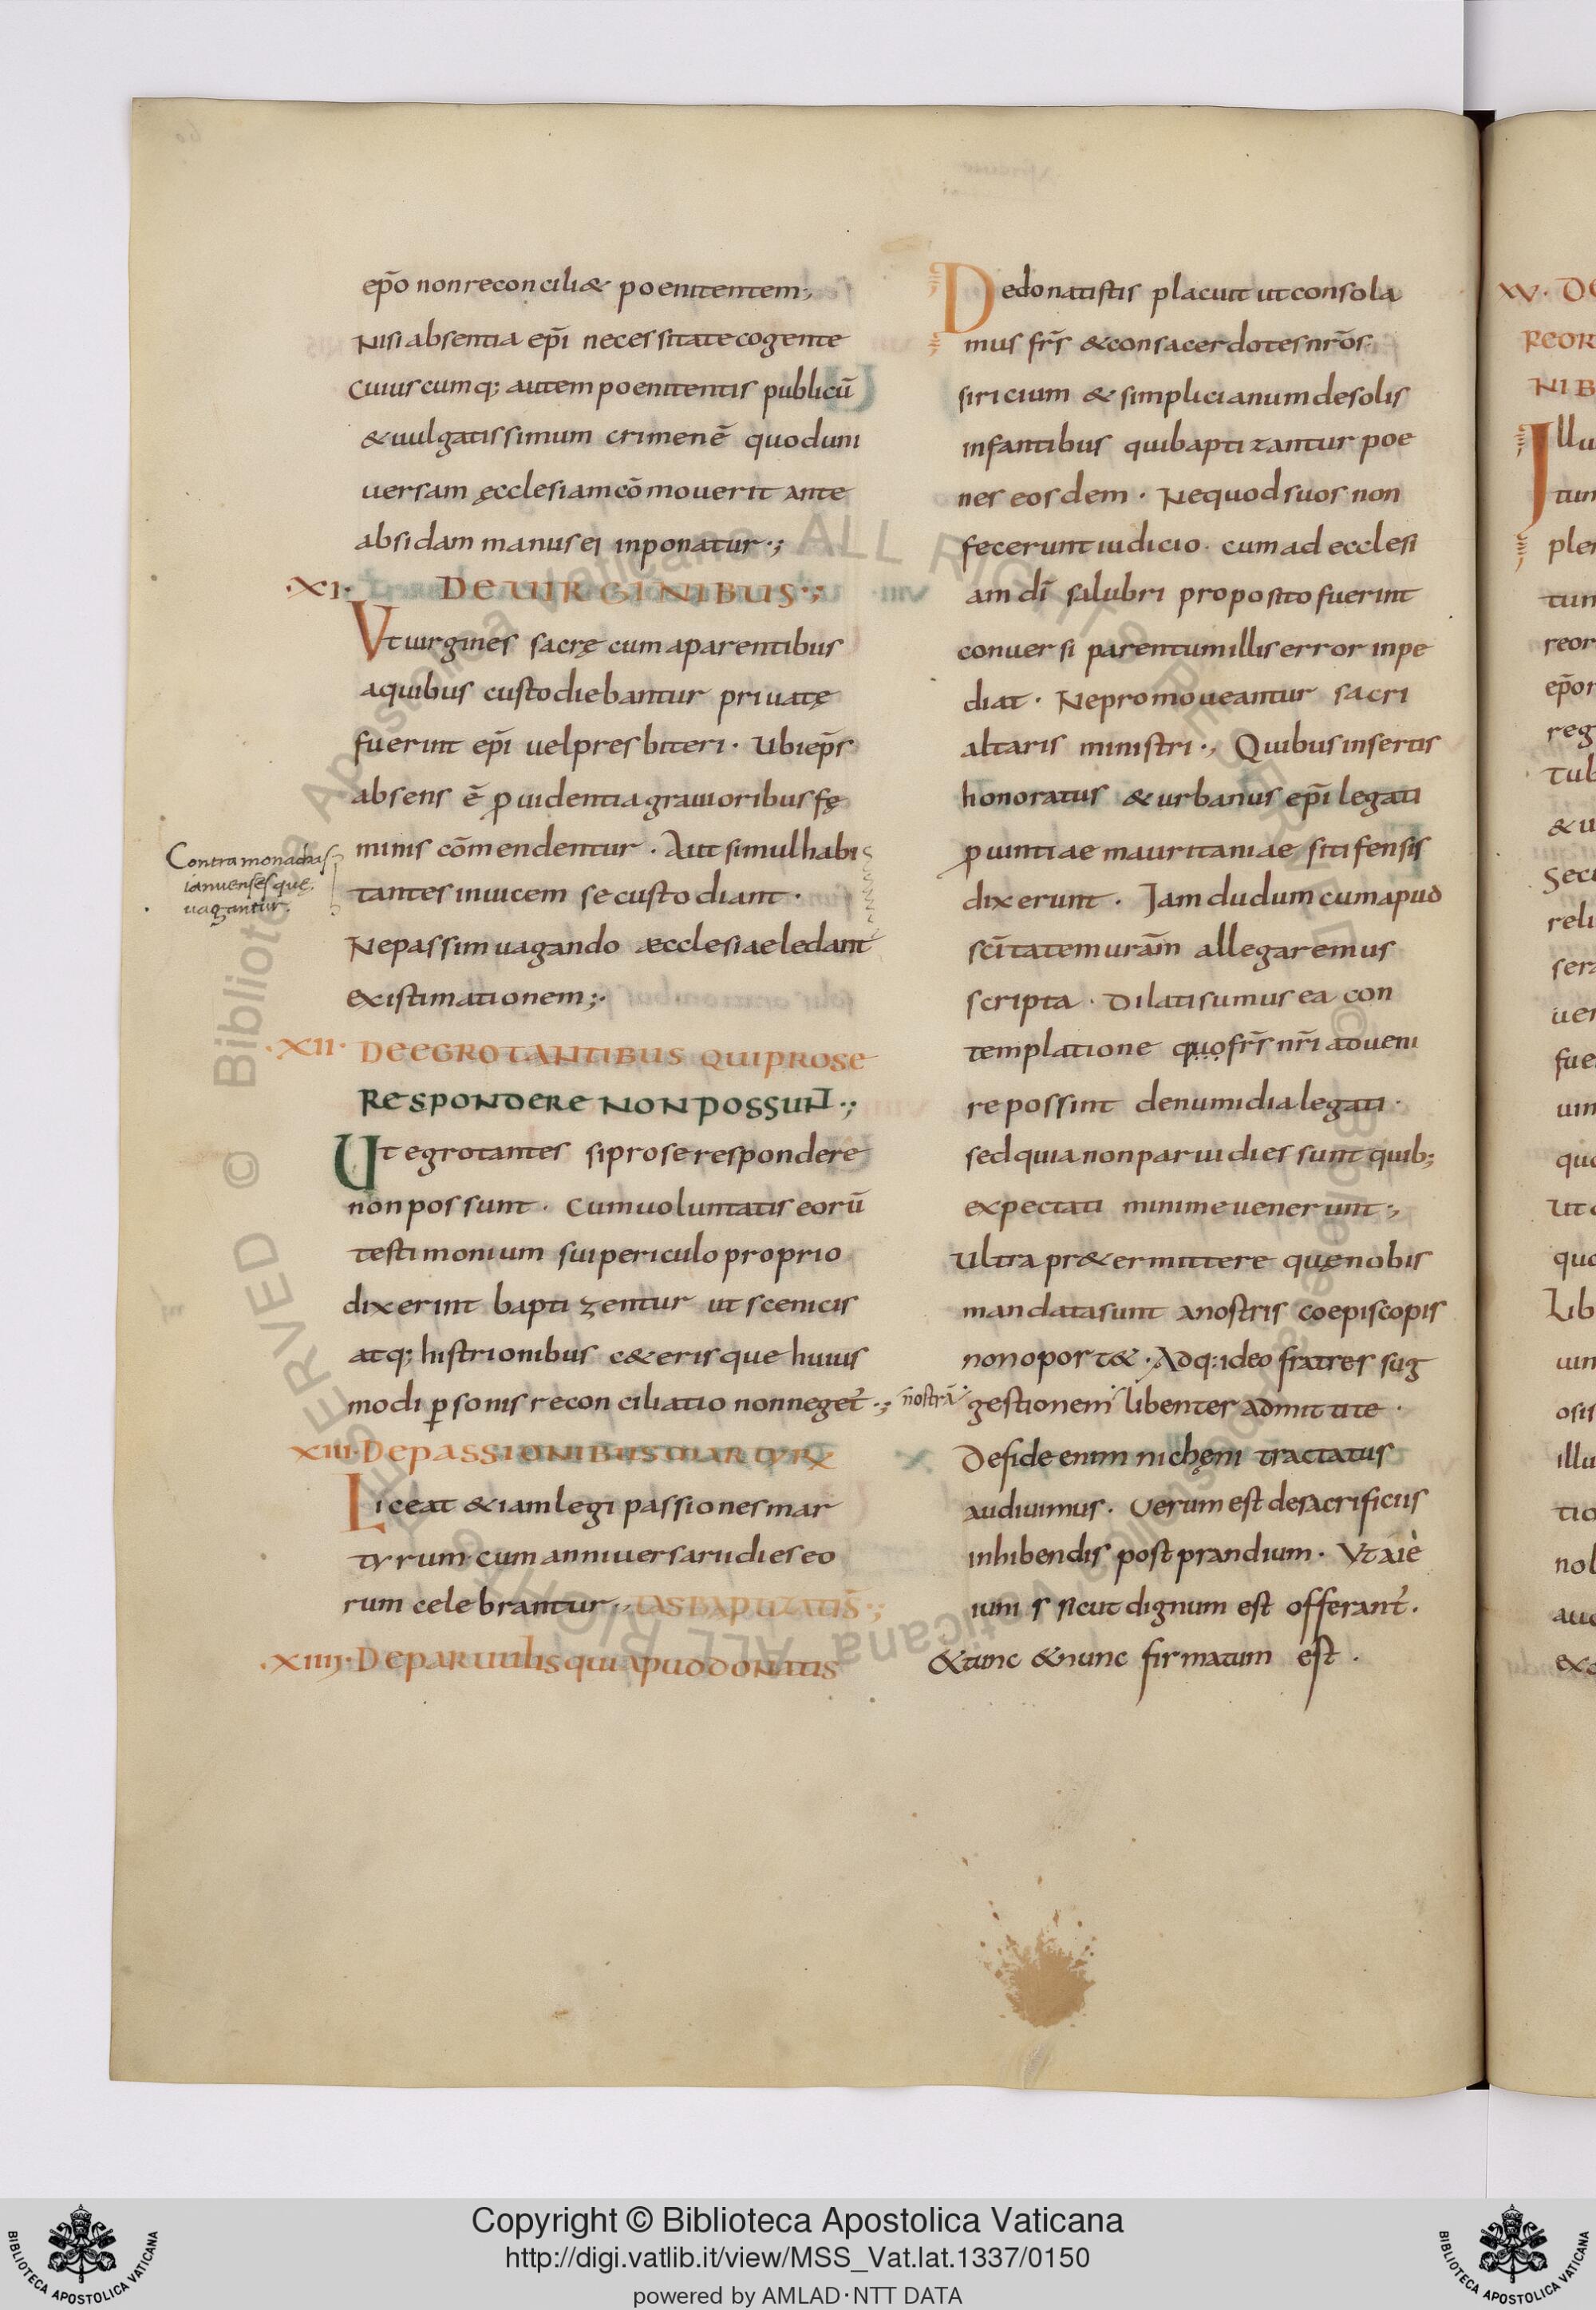 ep̄o non reconciliet poenitentem;
Nisi absentia ep̄i necessitate cogente
Cuiuscumq; autem poenitentis publicū
& uulgatissimum crimen ē quod uni
uersam ęcclesiam cōmouerit ante
absidam manus ei inponatur·;
·XI· DE UIRGINIBUS·;
Vt uirgines sacrę cum a parentibus
a quibus custodiebantur priuatę
fuerint ep̄i uel presbiteri · Ubi ep̄s
absens ē ꝓuidentia grauioribus fę
minis cōmendentur · Aut simul habi
tantes inuicem se custodiant ·
Ne passim uagando æcclesiae ledant
existimationem;·
Contra monachas
ianuenses quę
uagantur.
·XII· DE EGROTANTIBUS QUI PRO SE
RESPONDERE NON POSSUNT·;
Ut egrotantes si pro se respondere
non possunt · Cum uoluntatis eorū
testimonium sui periculo proprio
dixerint baptizentur ut scenicis
atq; histrionibus c&erisque huius
modi ꝑsonis reconciliatio non neget̄·;
XIII· De passionibus martyrꝝ
Liceat &iam legi passiones mar
tyrum cum anniuersarii dies eo
rum celebrantur·, tas baptizatis·;
·XIIIJ· De paruulis qui apud donatis
De donatistis placuit ut consola
mus fr̄s & consacerdotes nr̄os
siricium & simplicianum de solis
infantibus qui baptizantur poe
nes eosdem · Ne quod suos non
fecerunt iudicio · cum ad ecclesi
am dī salubri proposito fuerint
conuersi parentum illis error inpe
diat · Ne promoueantur sacri
altaris ministri·, Quibus insertis
honoratus & urbanus ep̄i legati
ꝓuintiae mauritaniae sitifensis
dixerunt · Jam dudum cum apud
sc̄itatem urām allegaremus
scripta · Dilati sumus ea con
templatione quo fr̄s nr̄i adueni
re possint de numidia legati ·
sed quia non parui dies sunt quib;
expectati minime uenerunt·,
Ultra pr&ermittere quę nobis
mandata sunt a nostris coepiscopis
non oport& · Adq; ideo fratres sug
nostrā gestionem libenter admittite ·
De fide enim nichęni tractatus
audiuimus · Verum est de sacrificiis
inhibendis post prandium · Vt a iè
iunis sicut dignum est offerant̄.
& tunc & nunc firmatum est .
XV· DE
REOR
NIB
Jllu
tum
ple
tun
reor
ep̄or
reg
& u
Sec
reli
sera
uer
fue
uin
qua
Ut
quo
Lib
uin
osis
illu
tio
nob
auc
exc
Copyright © Biblioteca Apostolica Vaticana
http://digi.vatlib.it/view/MSS_Vat.lat.1337/0150
powered by AMLAD·NTT DATA
BIBLIOTECA APOSTOLICA VATICANA
BIBLIOTECA APOSTOLICA VATICANA